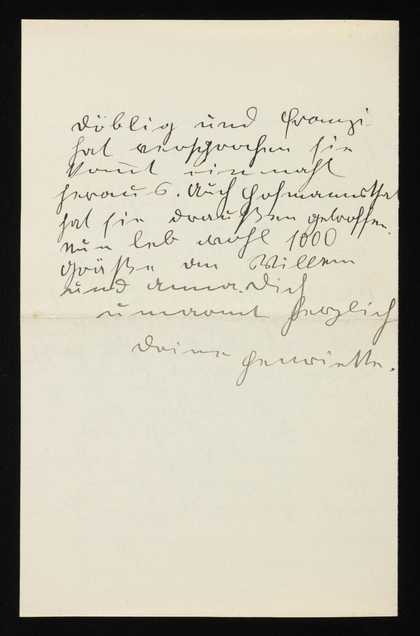 Döblig und Franzi
hat versprochen sie
komt einmahl
heraus. Auch Hofmannsthal
hat sie draußen getroffen.
Nun leb wohl 1000
Grüße an Willem
und Anna. Dich
umarmt herzlich
Deine Henriette.